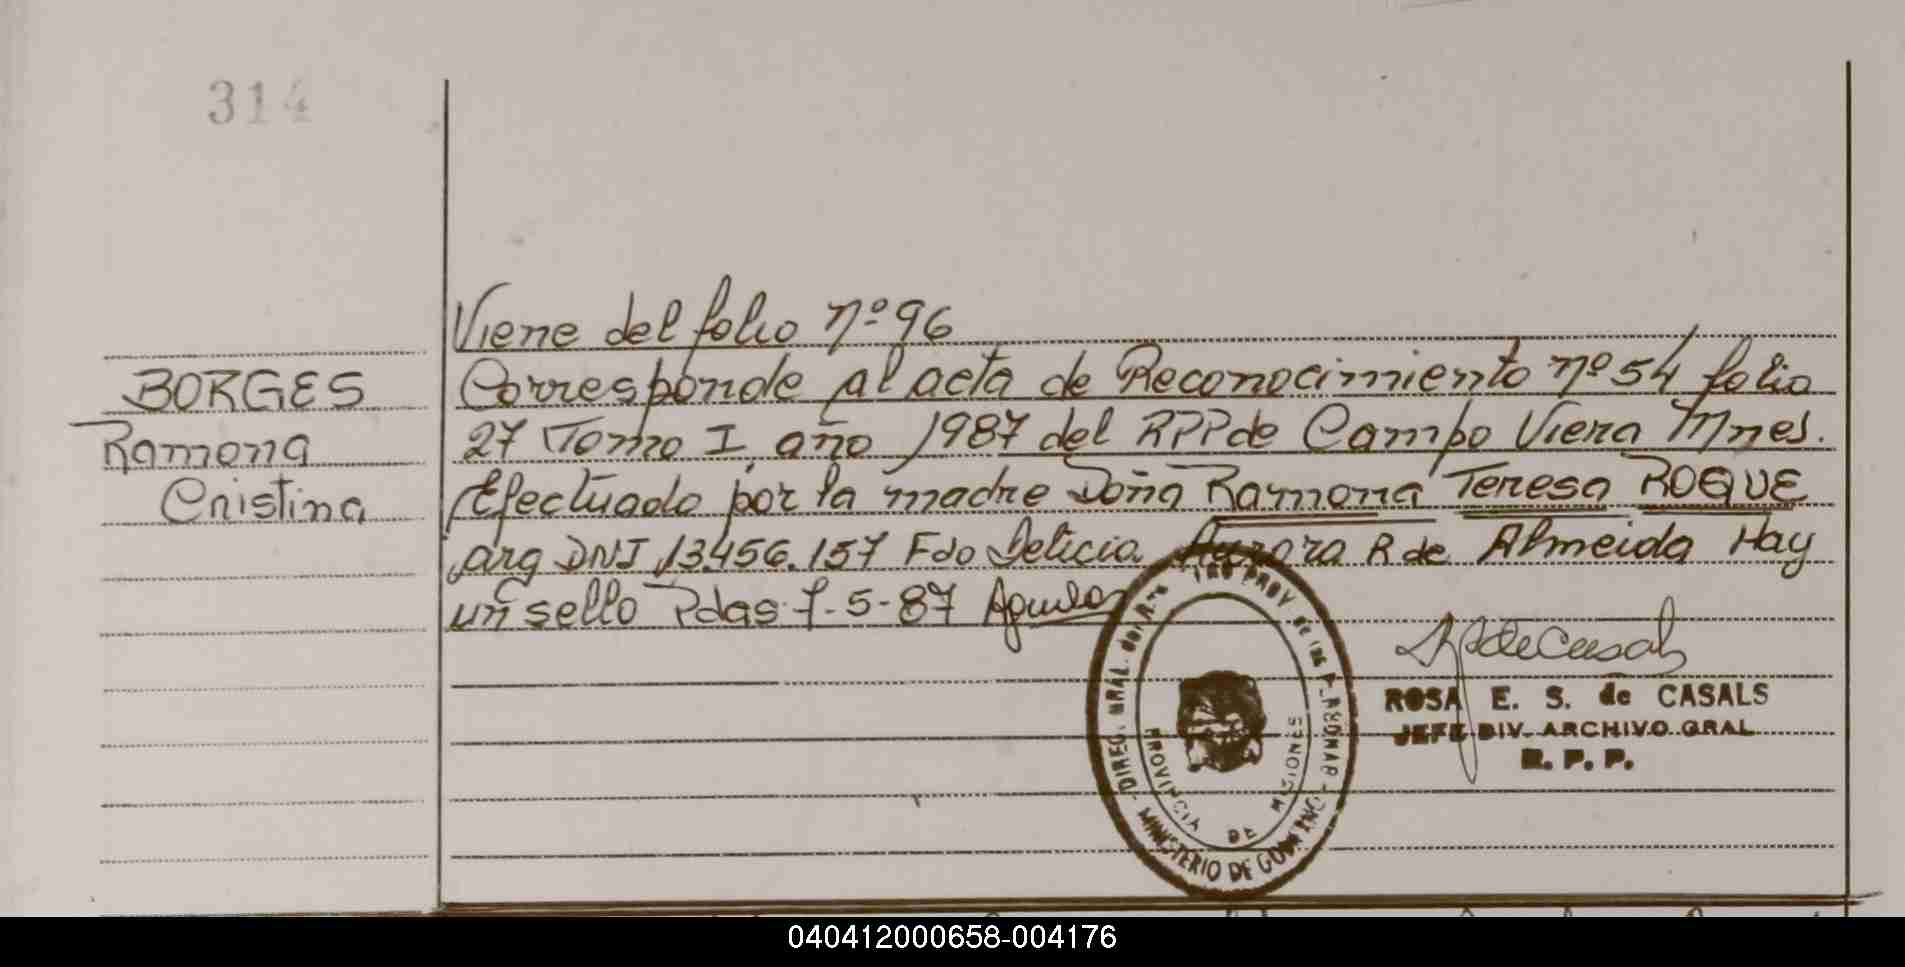 314
Viene del folio nº 96
BORGES
Ramona
Cristina
Corresponde al acta de Reconocimiento nº 54 folio
27 Tomo I, año 1987 del RPP de Campo Viera Mnes.
Efectuado por la madre Doña Ramona Teresa ROQUE
arg DNI 13.456.157 Fdo Leticia Aurora R de Almeida Hay
un sello Pdas 7-5-87
DIREC. GRAL. del PROV. de las
MINISTERIO DE
PROVINCIA DE MISIONES
ROSA E. S. de CASALS
JEFE DIV. ARCHIVO GRAL
R. P. P.
040412000658-004176